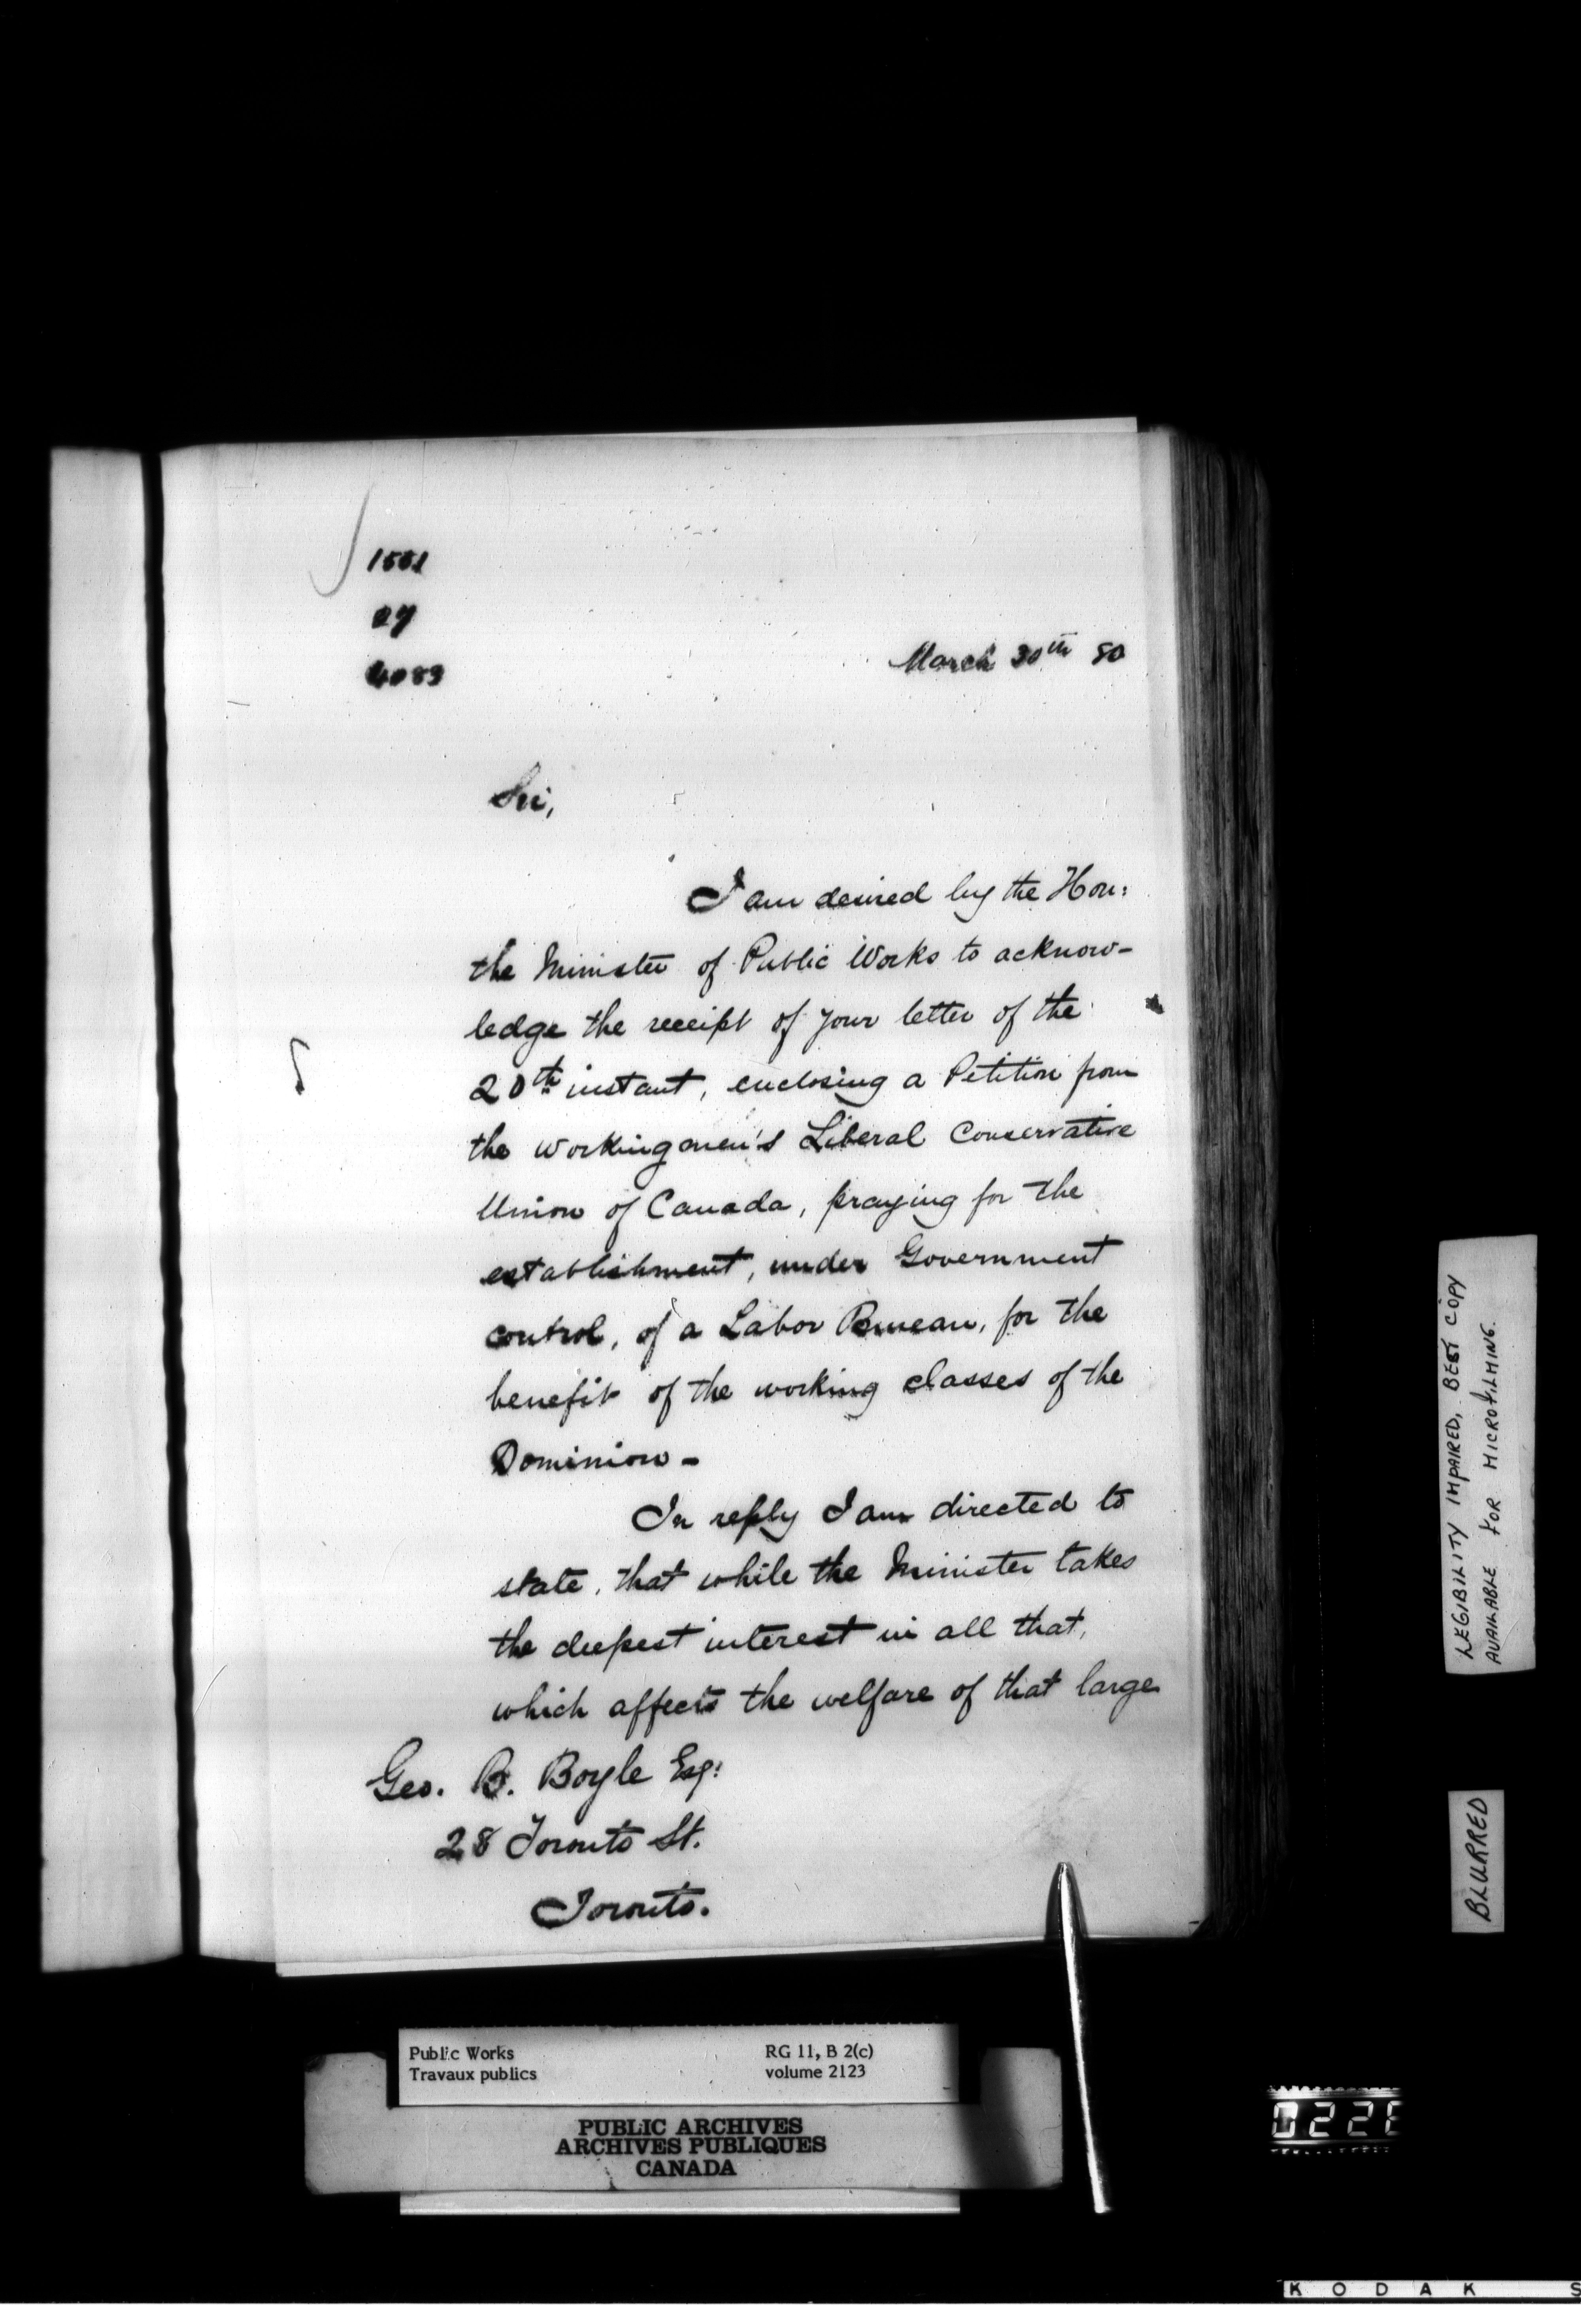 March 30th 80
Sir,
I am desired by the Hon:
the Minister of Public Works to acknow-
ledge the receipt of your letter of the
20th instant, enclosing a Petition from
the Workingmen's Liberal Conservative
Union of Canada, praying for the
establishment, under Government
control, of a Labor Bureau, for the
benefit of the working classes of the
Dominion -
In reply I am directed to
state, that while the Minister takes
the deepest interest in all that,
which affects the welfare of that large
Geo. B. Boyle Esq:
28 Toronto St.
Toronto.
LEGIBILITY IMPAIRED, BEST COPY
AVAILABLE FOR MICROFILMING.
BLURRED
Public Works
Travaux publics
RG 11, B 2(c)
volume 2123
PUBLIC ARCHIVES
ARCHIVES PUBLIQUES
CANADA
KODAK S